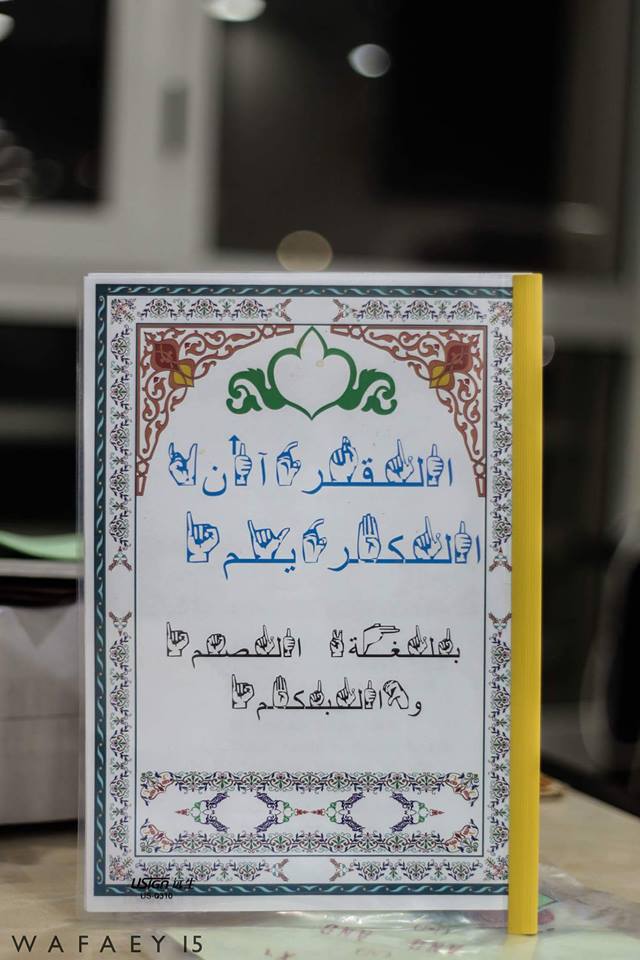 القرآن
الكريم
بلغة الصم
والبكم
USign
US-0310
WAFAEY 15